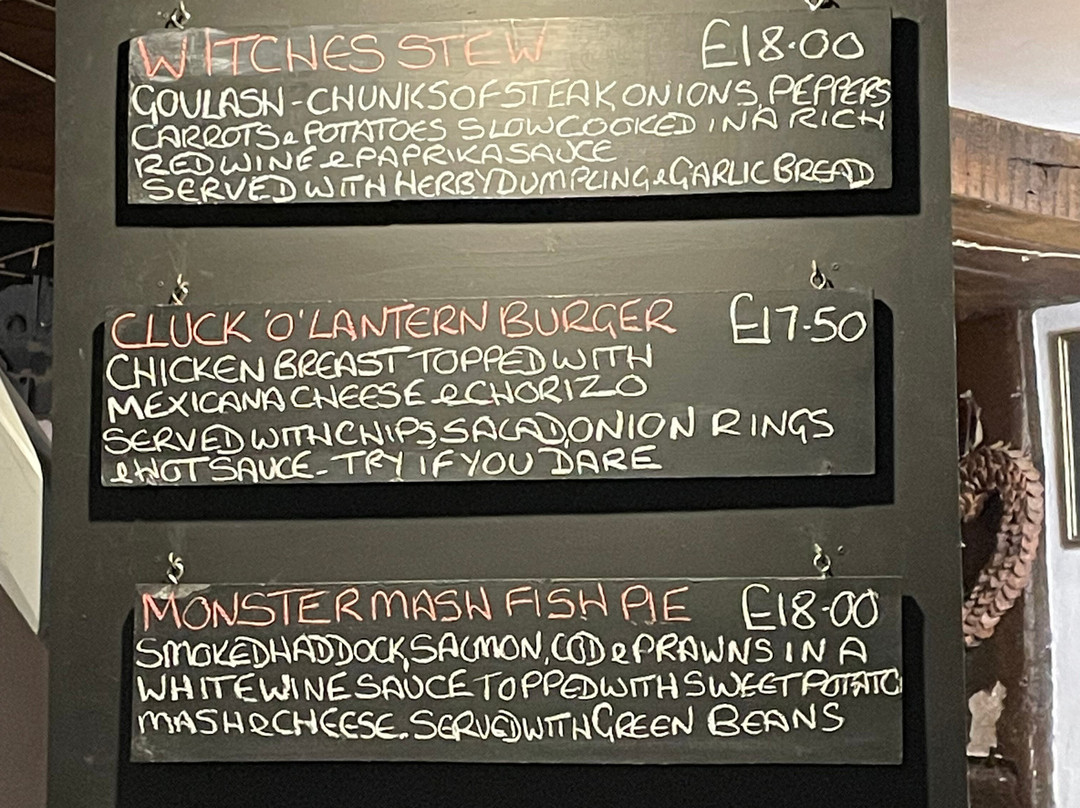 WITCHES STEW £18.00
GOULASH - CHUNKS OF STEAK, ONIONS, PEPPERS
CARROTS & POTATOES SLOW COOKED IN A RICH
RED WINE & PAPRIKA SAUCE
SERVED WITH HERBY DUMPLING & GARLIC BREAD
CLUCK 'O' LANTERN BURGER £17.50
CHICKEN BREAST TOPPED WITH
MEXICANA CHEESE & CHORIZO
SERVED WITH CHIPS, SALAD, ONION RINGS
& HOT SAUCE - TRY IF YOU DARE
MONSTER MASH FISH PIE £18.00
SMOKED HADDOCK, SALMON, COD & PRAWNS IN A
WHITE WINE SAUCE TOPPED WITH SWEET POTATO
MASH & CHEESE. SERVED WITH GREEN BEANS